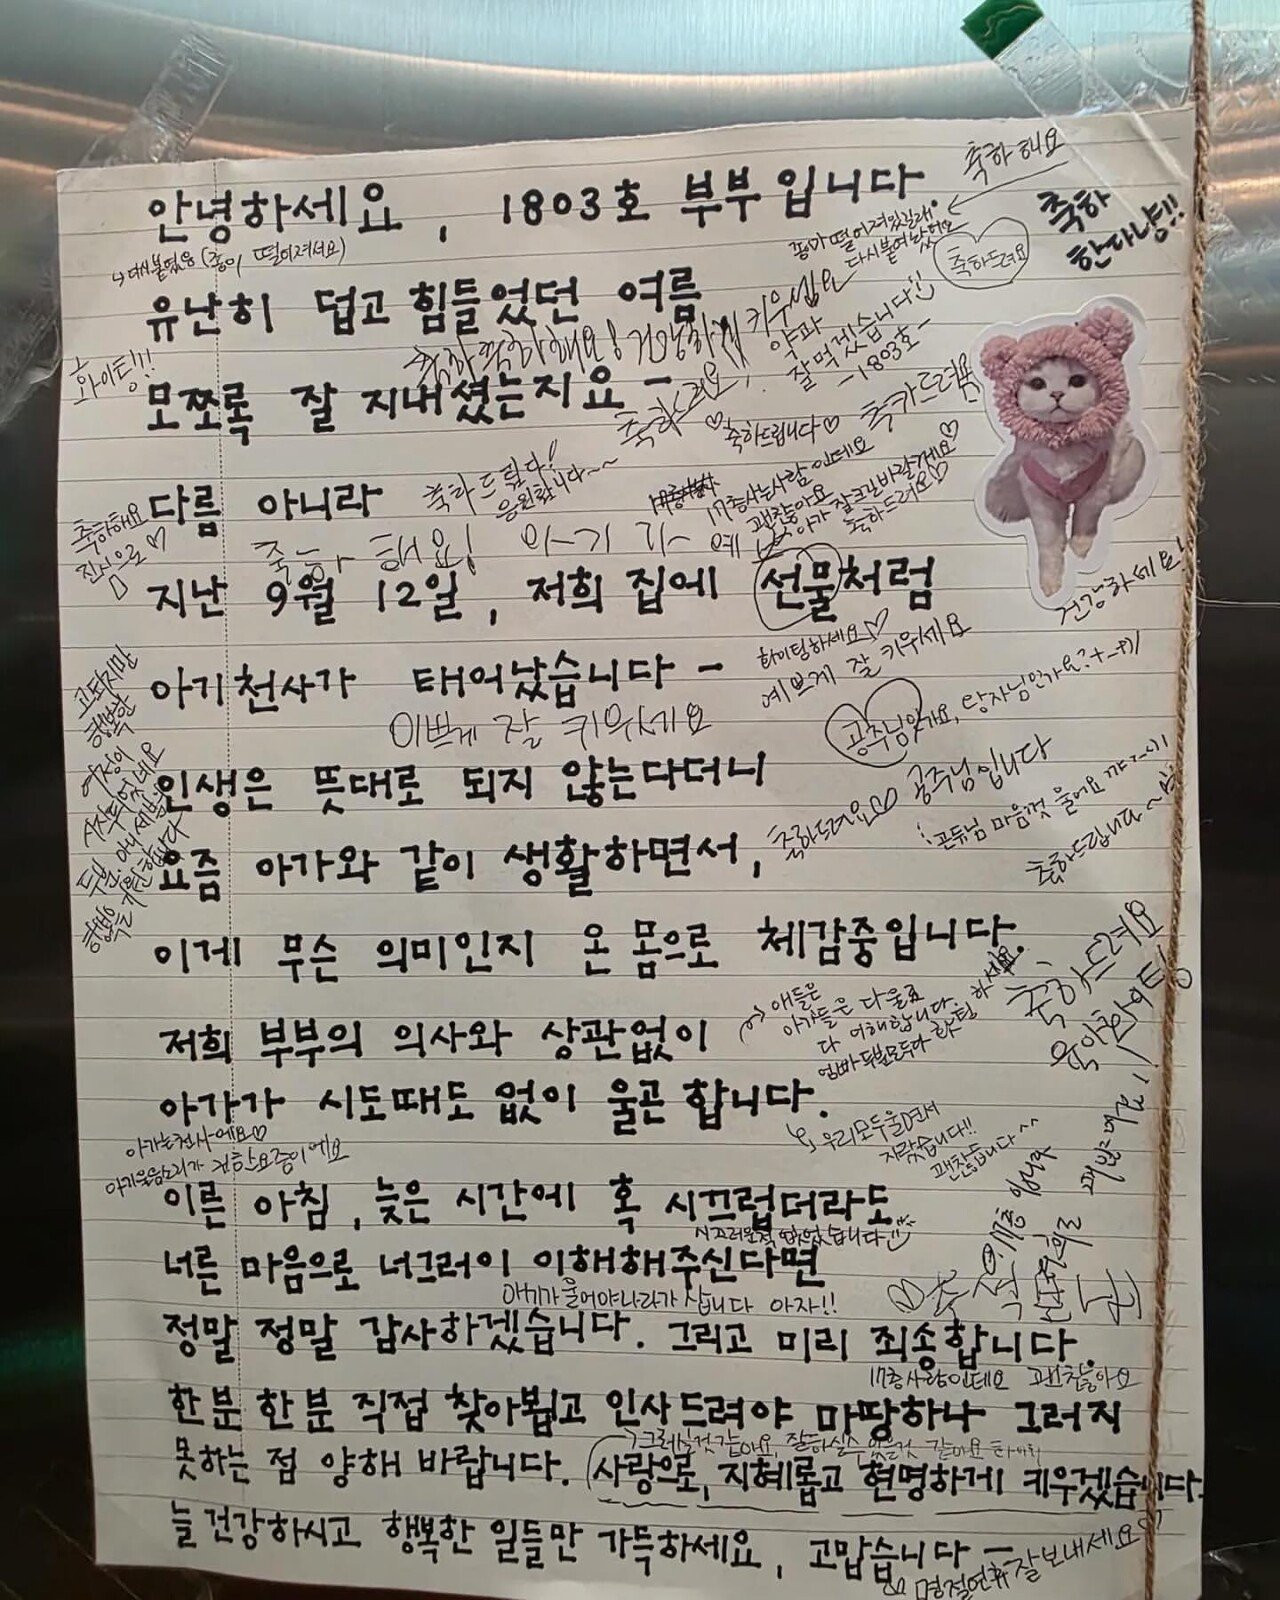 축하해요
안녕하세요, 1803호 부부입니다.
축하
한다냥!!
↳ 다시붙였음 (종이 떨어져서요)
종이가 떨어져있길래
다시붙여놨어요
축하드려요
유난히 덥고 힘들었던 여름
축하축하해요! 건강하게 키우십요
약과
잘 먹겠습니다!!
-1803호-
화이팅!!!
모쪼록 잘 지내셨는지요 -
축하드려요!
♡축하드립니다♡
축하드려용
다름 아니라
축하드립니다!
응원합니다~~
17층사는사람인데요
괜찮아요
아가 잘크길바랄게요♡
축하드려요♡
축하해요
진심으로♡
축하해요!
지난 9월 12일, 저희 집에 선물처럼
건강하세요!
아기천사가 태어났습니다 -
화이팅하세요♡
예쁘게 잘 키우세요
이쁘게 잘 키우세요
공주님일까요, 왕자님인가요?
고되지만
행복한
여정이
시작되었네요
두분, 아니 세분
행복을 기원합니다
인생은 뜻대로 되지 않는다더니
공주님입니다
요즘 아가와 같이 생활하면서,
축하드려요♡
공듀님 마음껏 울어요
축하드립니다~
이게 무슨 의미인지 온 몸으로 체감중입니다.
축하드려요
육아화이팅
저희 부부의 의사와 상관없이
애들은
아가들은 다 울죠
다 이해합니다.
엄빠 두분모두 다 화팅 하세요
아가가 시도때도 없이 울곤 합니다.
아가는천사에요♡
아기울음소리가 귀한요즘이에요
우리모두울면서
자랐습니다!!
괜찮습니다^^
이른 아침, 늦은 시간에 혹 시끄럽더라도
시끄러운적 없었습니다
너른 마음으로 너그러이 이해해주신다면
아기가울어야나라가 삽니다 아자!!
정말 정말 감사하겠습니다. 그리고 미리 죄송합니다.
17층사람인데요 괜찮아요
한분 한분 직접 찾아뵙고 인사드려야 마땅하나 그러지
그러실것 같아요, 잘하실수 있을것 같아요 화이팅
못하는 점 양해 바랍니다. 사랑으로, 지혜롭고 현명하게 키우겠습니다.
늘 건강하시고 행복한 일들만 가득하세요, 고맙습니다 -
명절연휴 잘보내세요